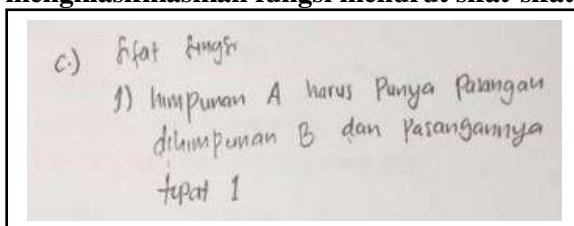 c.) Sifat fungsi
1) himpunan A harus Punya Pasangan
dihimpunan B dan Pasangannya
tepat 1